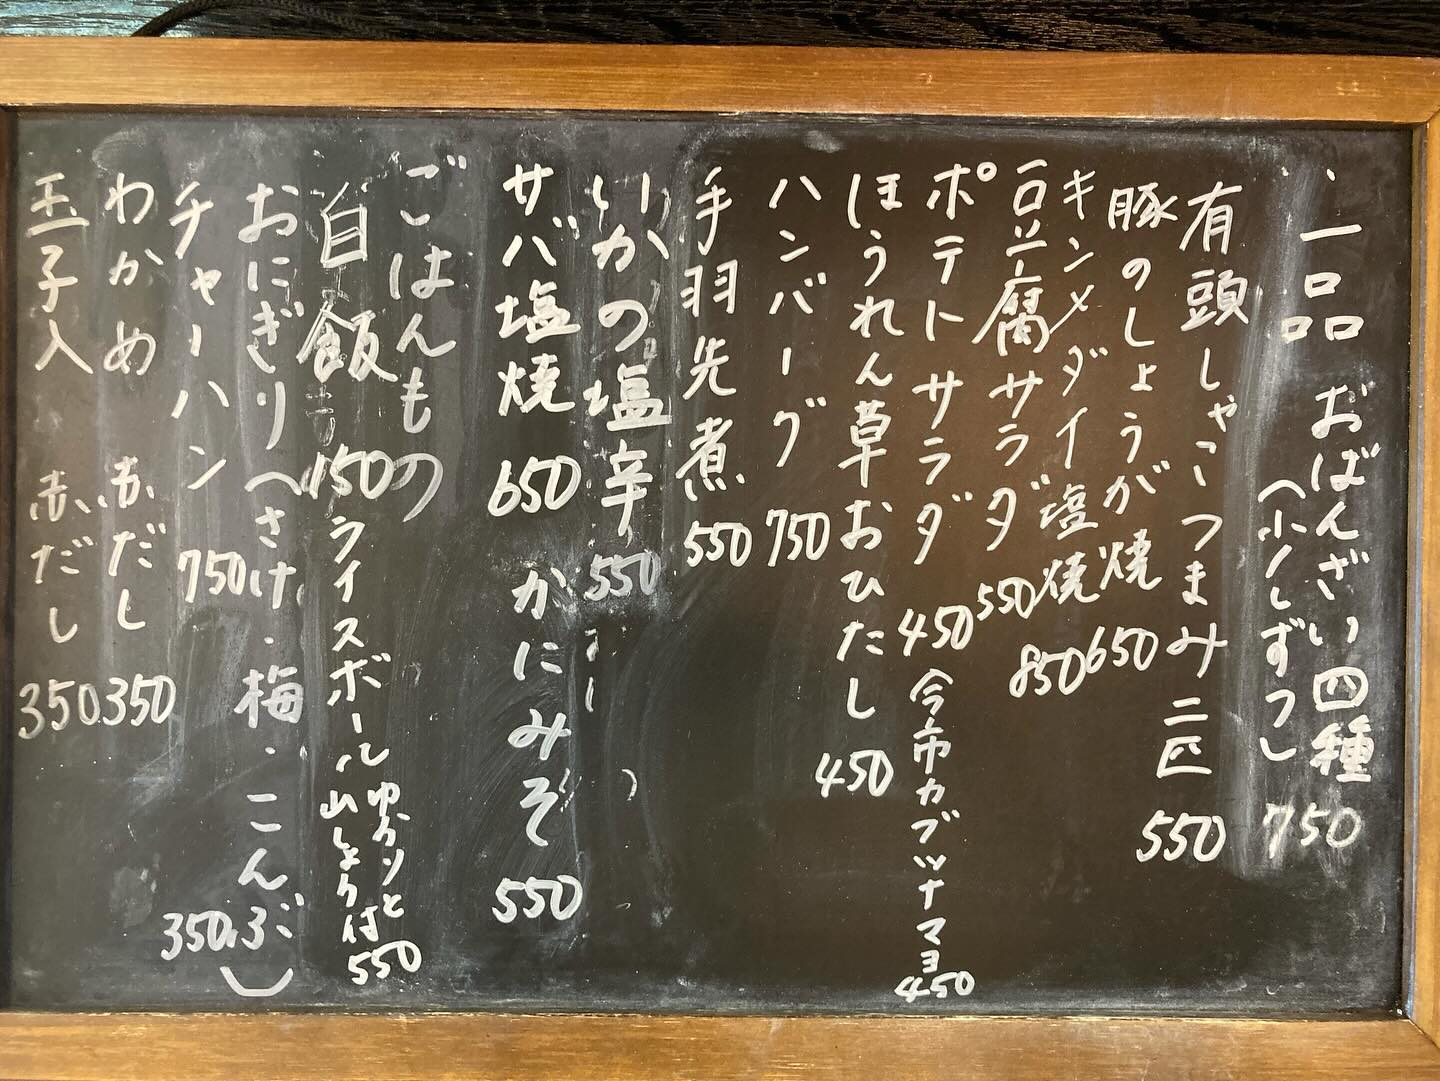 一品 おばんざい四種 750
(少しずつ)
有頭しゃこつまみ二匹 550
豚のしょうが焼 650
キンメダイ塩焼 850
豆腐サラダ 550
ポテトサラダ 450
今市カブツナマヨ 450
ほうれん草おひたし 450
ハンバーグ 750
手羽先煮 550
いかの塩辛 550
サバ塩焼 650
かにみそ 550
ごはんもの
白飯 150
ライスボール ゆかりと
山しょう付 550
おにぎり(さけ・梅・こんぶ) 350
チャーハン 750
わかめ 赤だし 350
玉子入 赤だし 350